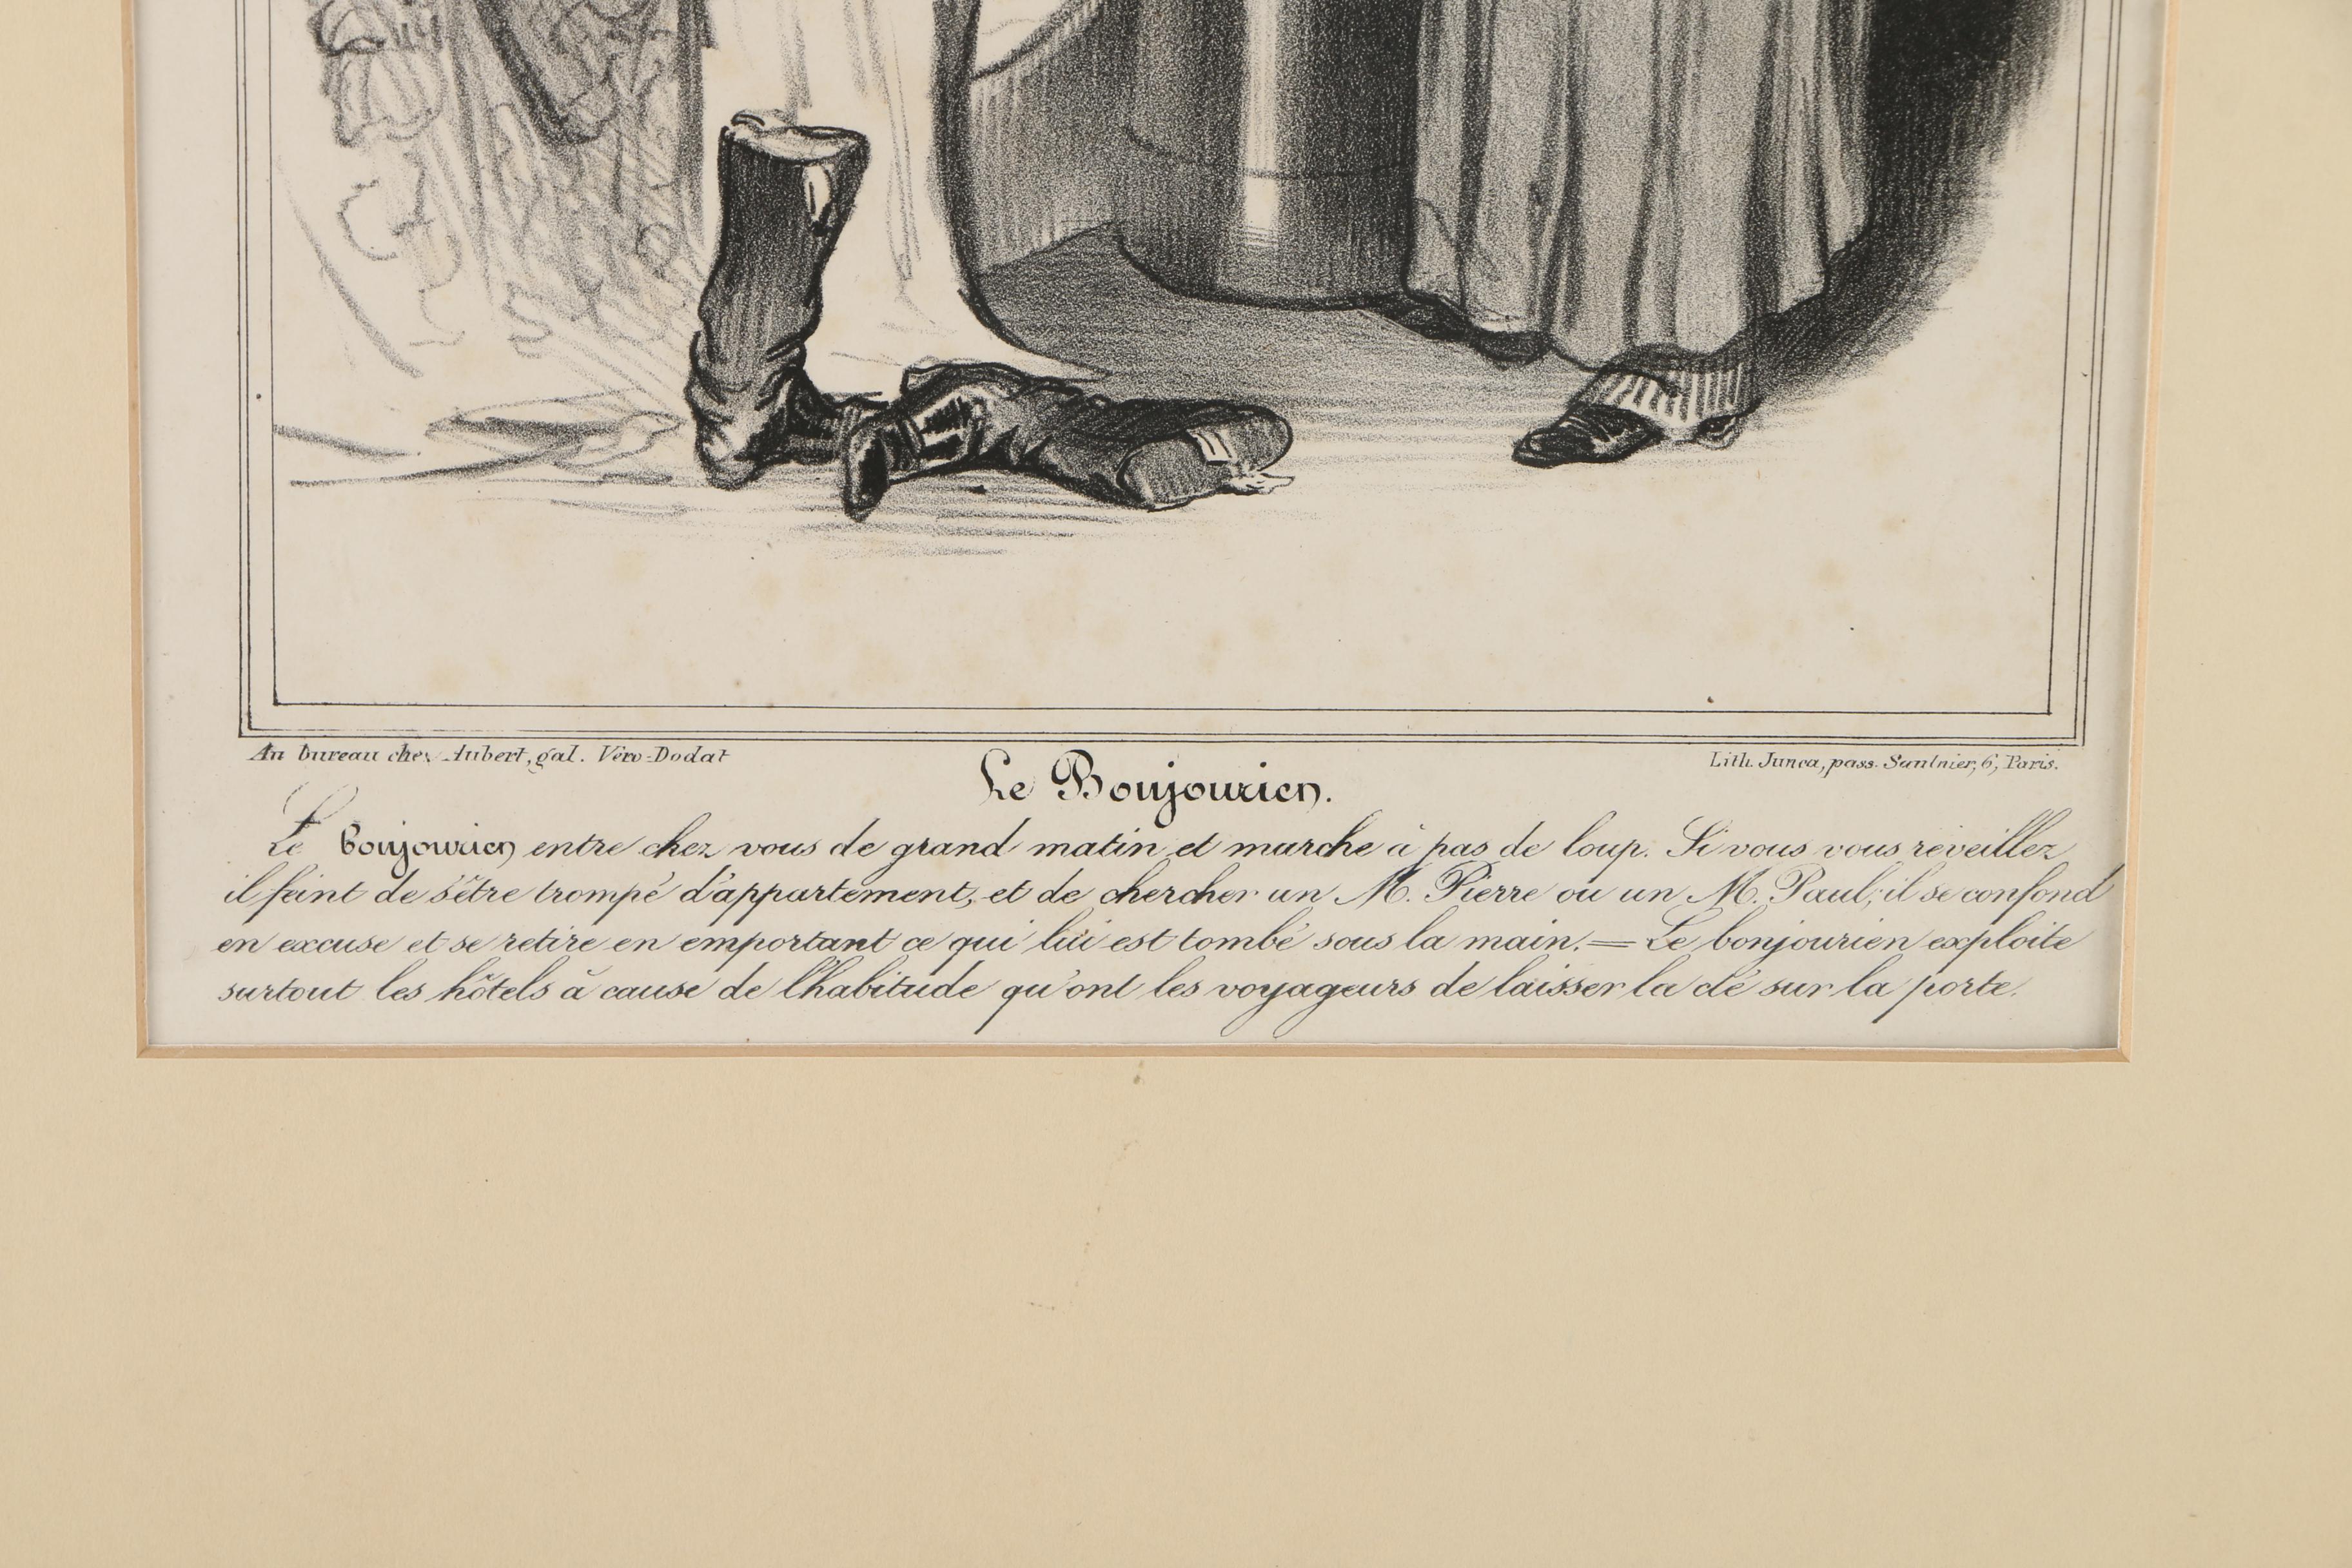 Au bureau chez Aubert, gal. Véro-Dodat
Lith. Junca, pass. Saulnier, 6, Paris.
Le Bonjourien.
Le bonjourien entre chez vous de grand matin et marche à pas de loup. Si vous vous réveillez
il feint de s'être trompé d'appartement, et de chercher un M. Pierre ou un M. Paul; il se confond
en excuse et se retire en emportant ce qui lui est tombé sous la main. = Le bonjourien exploite
surtout les hôtels à cause de l'habitude qu'ont les voyageurs de laisser la clé sur la porte.